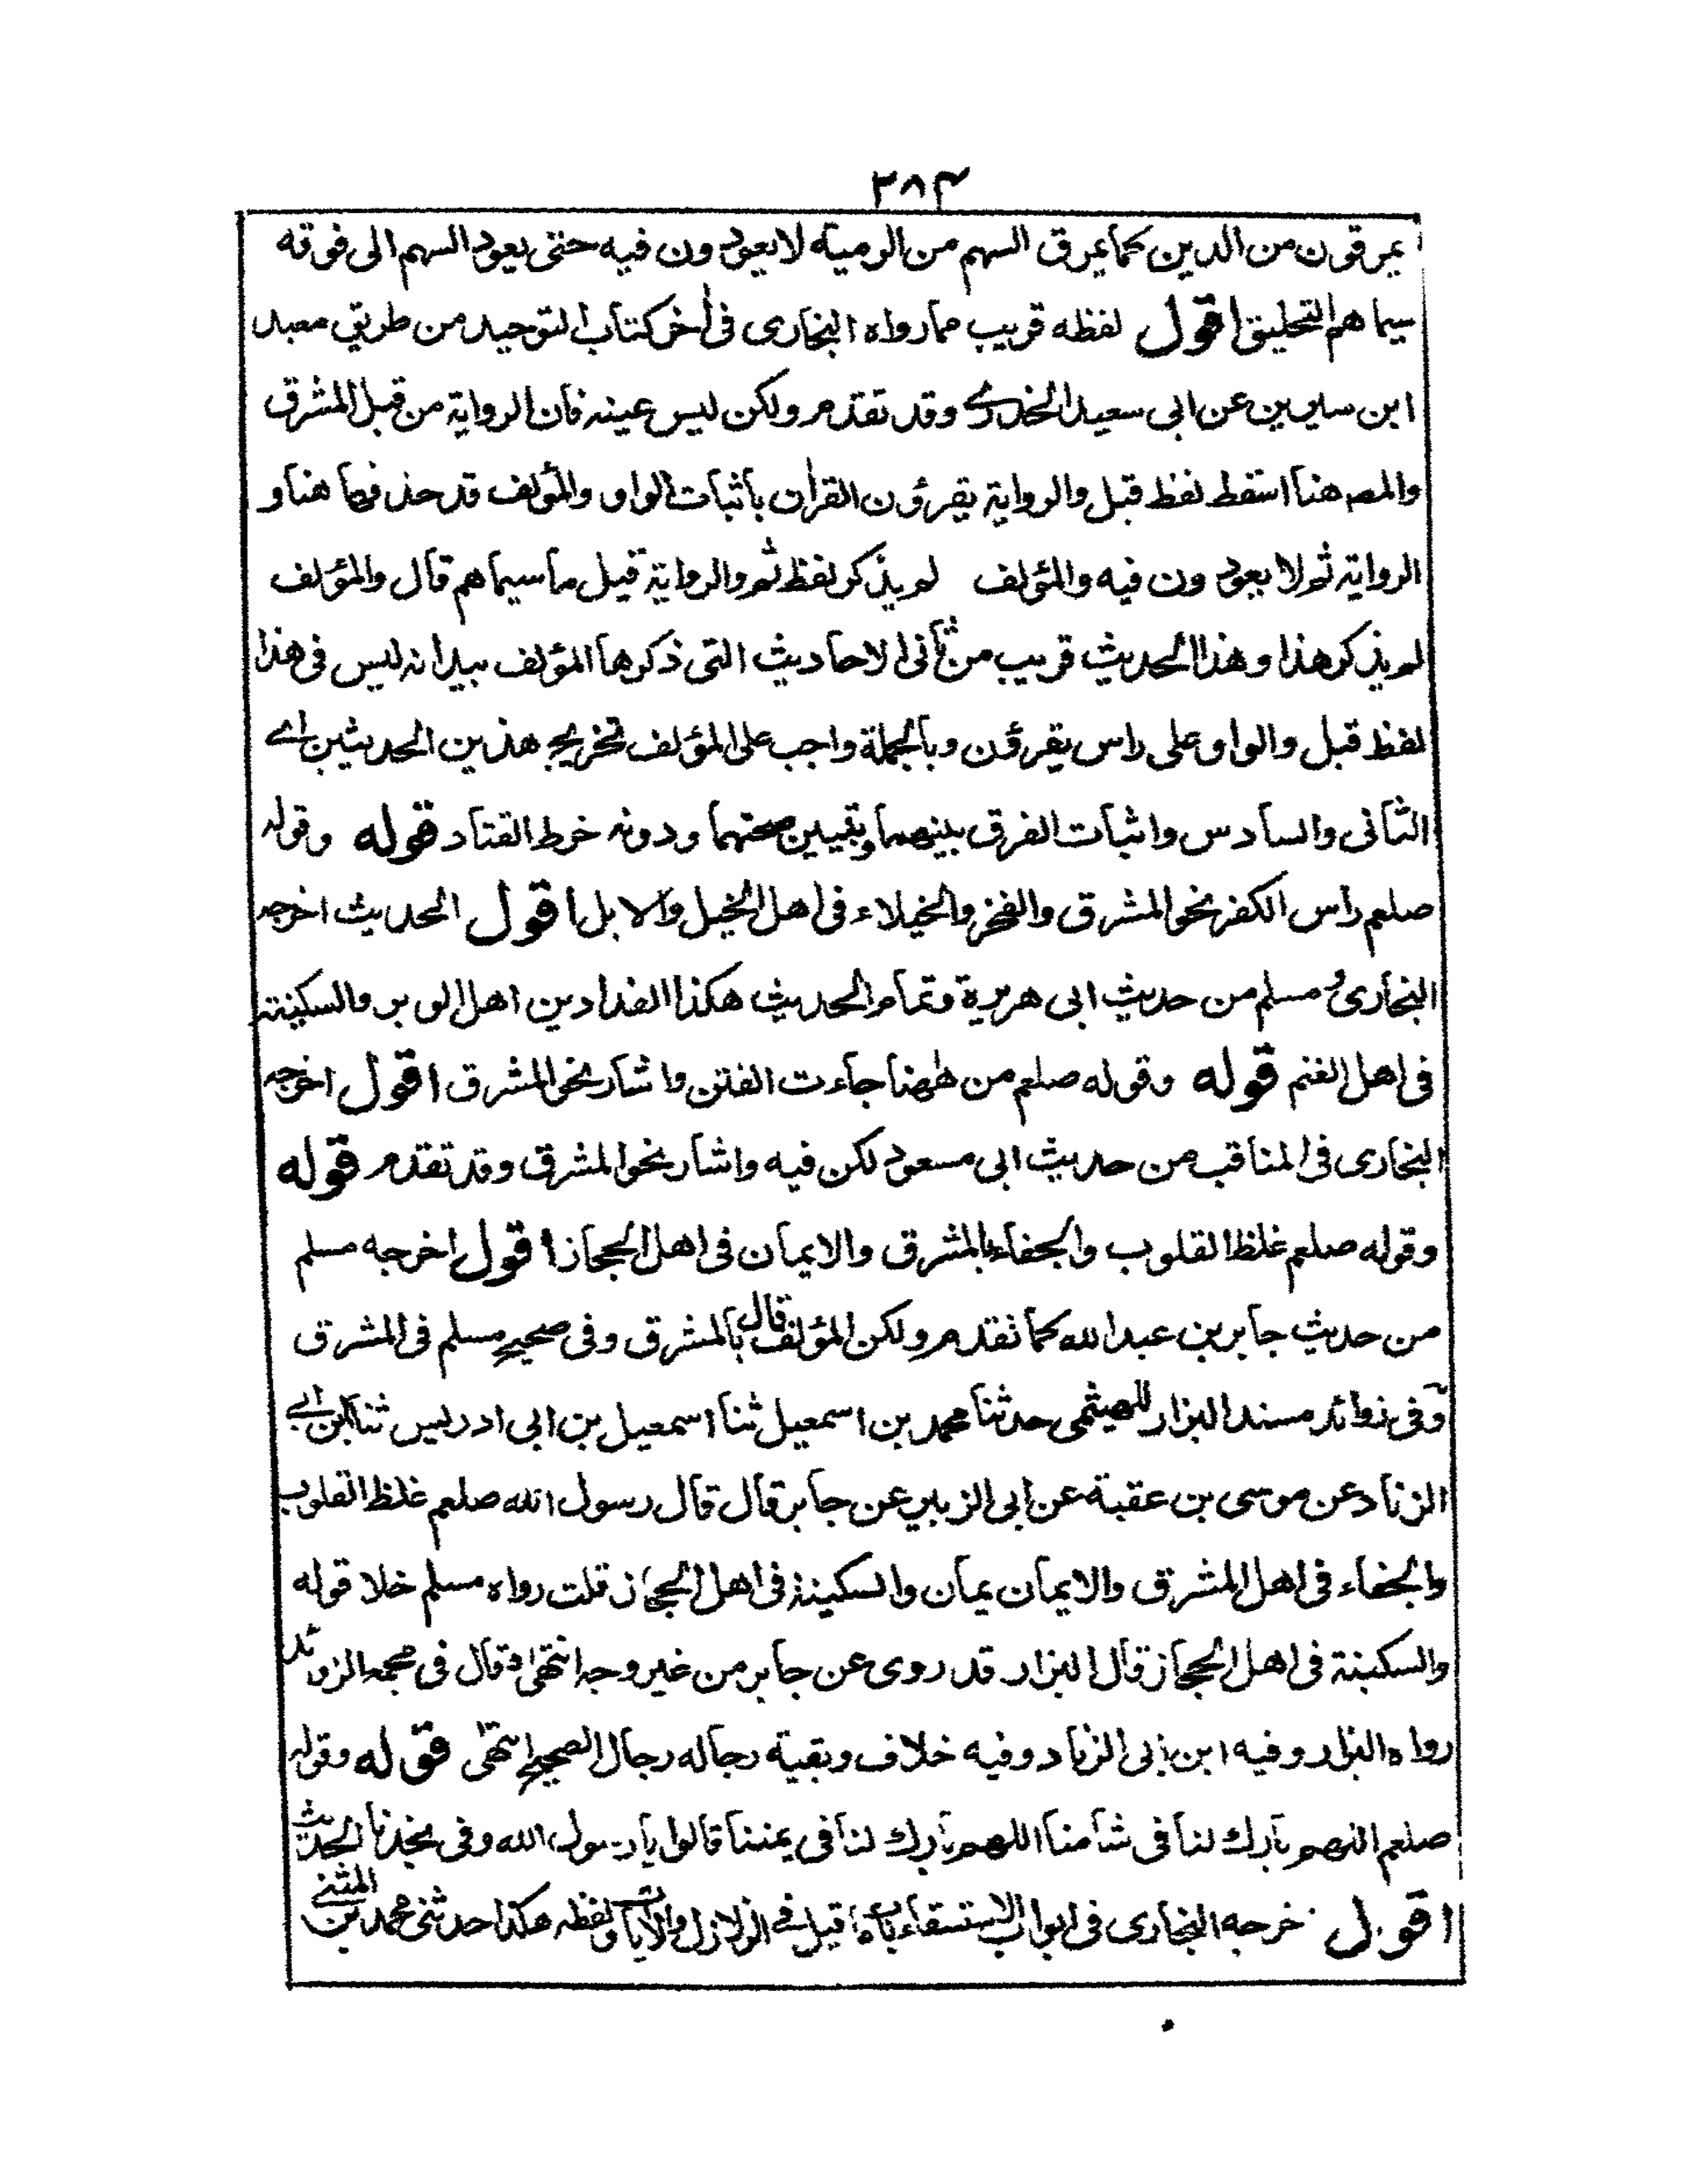 ٣٨٤
يمرقون من الدين كما يمرق السهم من الرمية لا يعودون فيه حتى يعود السهم الى فوقه
سيماهم التحليق اقول لفظه قريب مما رواه البخارى فى اٰخر كتاب التوحيد من طريق معبد
ابن سيرين عن ابى سعيد الخدرى وقد تقدم ولكن ليس عينه فان الرواية من قبل المشرق
والمصـ هنا اسقط لفظ قبل والرواية يقرؤن القراٰن باثبات الواو والمؤلف قد حذفها هنا و
الرواية ثم لا يعودون فيه والمؤلف لم يذكر لفظ ثم والرواية قيل ما سيماهم قال والمؤلف
لم يذكر هذا وهذا الحديث قريب من ثانى الاحاديث التى ذكرها المؤلف بيد انه ليس فى هذا
لفظ قبل والواو على راس يقرؤن وبالجملة واجب على المؤلف تخريج هذين الحديثين اے
الثانى والسادس واثبات الفرق بينهما وتبيين صحتهما ودونه خرط القتاد قوله وقوله
صلعم راس الكفر نحو المشرق والفخر والخيلاء فى اهل الخيل والابل اقول الحديث اخرجه
البخارى ومسلم من حديث ابى هريرة وتمام الحديث هكذا الفدادين اهل الوبر والسكينة
فى اهل الغنم قوله وقوله صلعم من ههنا جاءت الفتن واشار نحو المشرق اقول اخرجه
البخارى فى المناقب من حديث ابى مسعود لكن فيه واشار نحو المشرق وقد تقدم قوله
وقوله صلعم غلظ القلوب والجفاء بالمشرق والايمان فى اهل الحجاز اقول اخرجه مسلم
من حديث جابر بن عبد الله كما تقدم ولكن المؤلف قال بالمشرق وفى صحيح مسلم فى المشرق
وفى زوائد مسند البزار للهيثمى حدثنا محمد بن اسمعيل ثنا اسمعيل بن ابى ادريس ثنا ابن ابے
الزناد عن موسى بن عقبة عن ابى الزبير عن جابر قال قال رسول الله صلعم غلظ القلوب
والجفاء فى اهل المشرق والايمان يمان والسكينة فى اهل الحجاز قلت رواه مسلم خلا قوله
والسكينة فى اهل الحجاز قال البزار قد روى عن جابر من غير وجه انتهى وقال فى مجمع الزوائد
رواه البزار وفيه ابن ابى الزناد وفيه خلاف وبقية رجاله رجال الصحيح انتهى قوله وقوله
صلعم اللهم بارك لنا فى شامنا اللهم بارك لنا فى يمننا قالوا يا رسول الله وفى نجدنا الحديث
اقول خرجه البخارى فى ابواب الاستسقاء باب ما قيل فى الزلازل والايات ولفظه هكذا حدثنى محمد بن المثنى